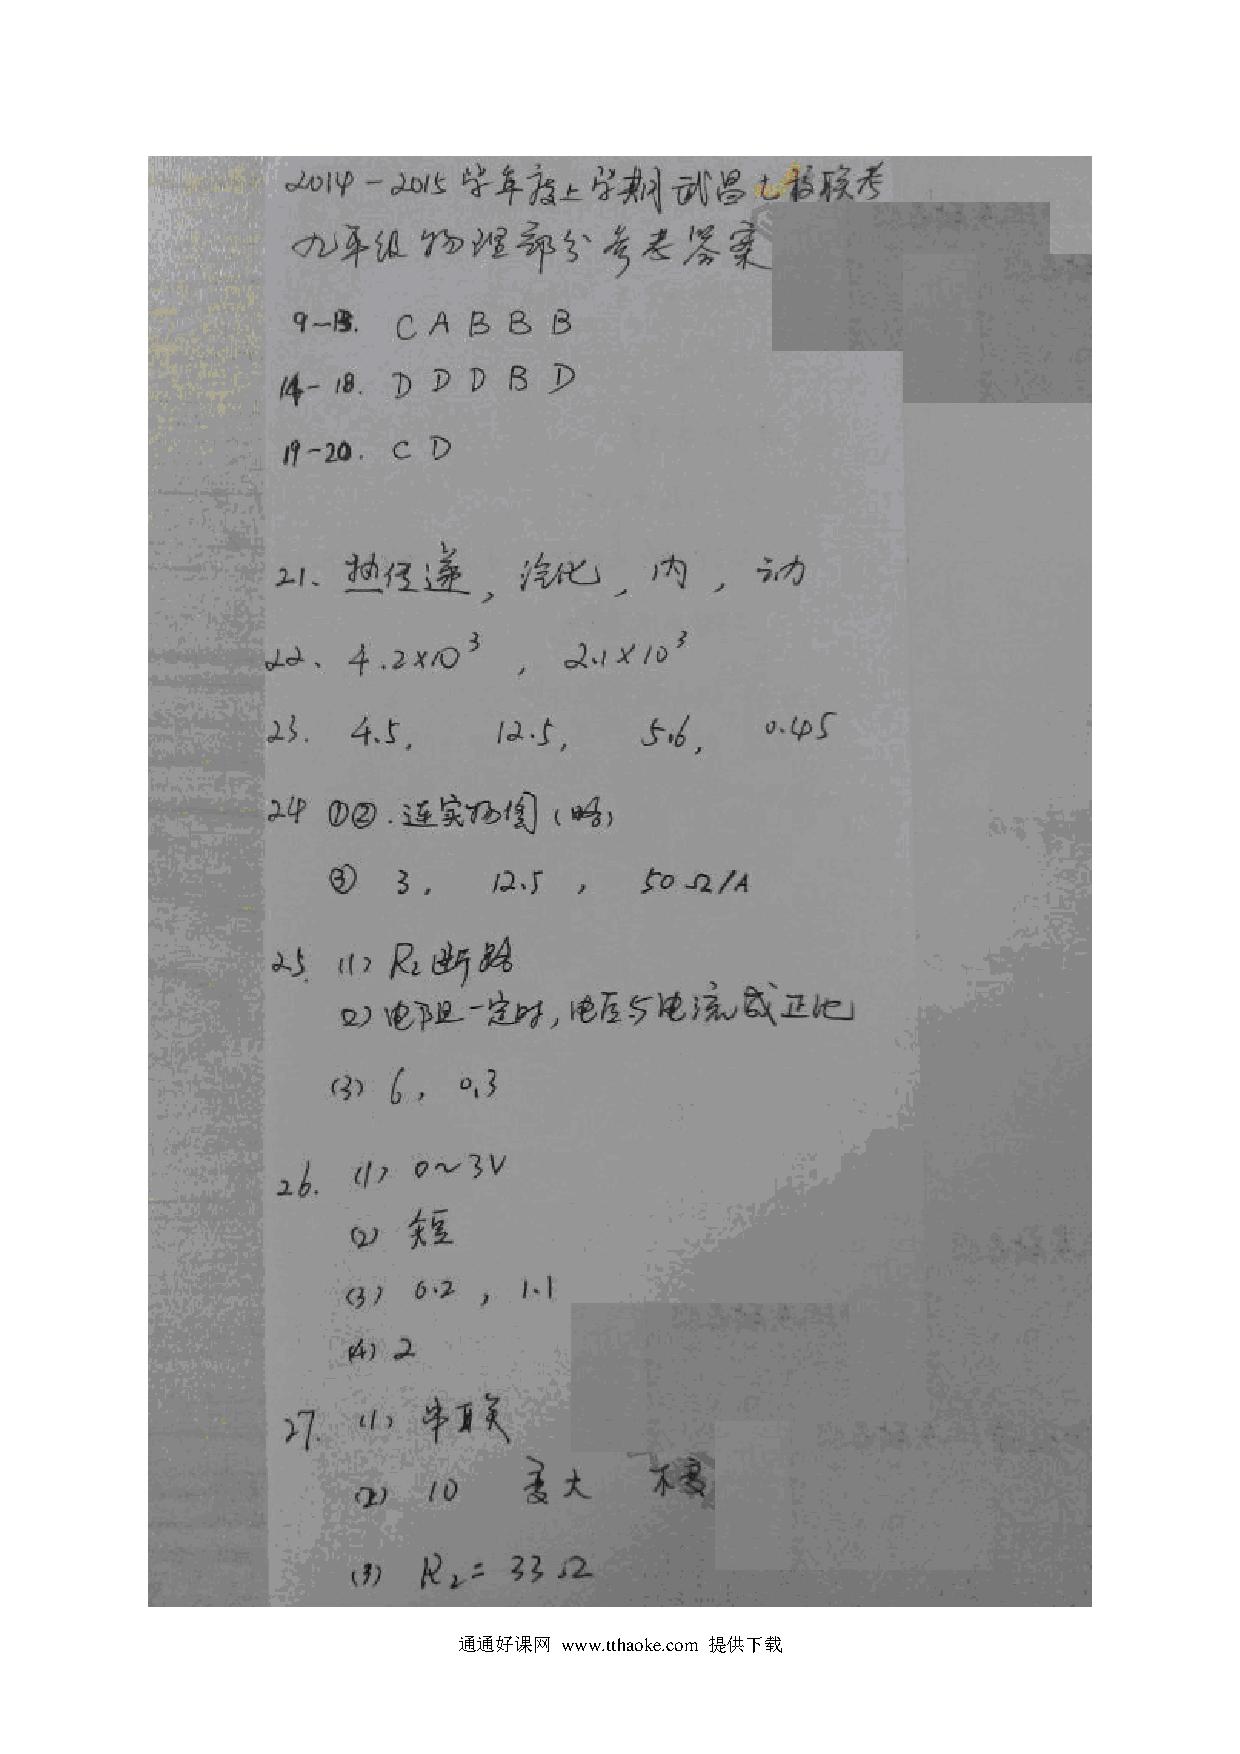 2014-2015学年度上学期武昌七校联考
九年级物理部分参考答案
9-13. C A B B B
14-18. D D D B D
19-20. C D
21、热传递,汽化,内,动
22、4.2×10³,2.1×10³
23. 4.5, 12.5, 5.6, 0.45
24 ①②.连实物图(略)
③ 3, 12.5, 50Ω/A
25. (1) R₂断路
(2) 电阻一定时,电压与电流成正比
(3) 6, 0.3
26. (1) 0~3V
(2) 短
(3) 0.2, 1.1
(4) 2
27. (1) 串联
(2) 10 变大 不变
(3) R₂=33Ω
通通好课网 www.tthaoke.com 提供下载